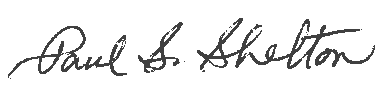 Paul S. Shelton